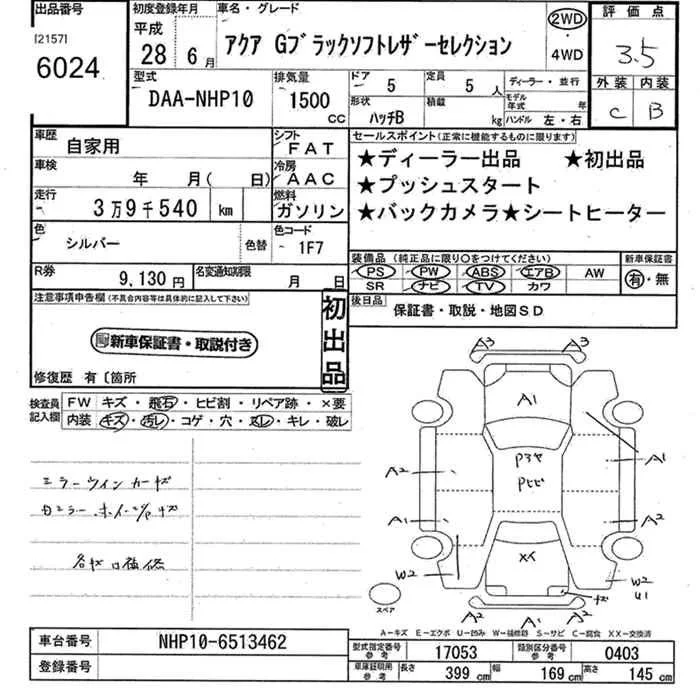 出品番号
[2157]
6024
初度登録年月
平成
28 6月
車名・グレード
アクア Gブラックソフトレザーセレクション
2WD
4WD
評価点
3.5
外装 内装
C B
型式
DAA-NHP10
排気量
1500
CC
ドア 5
定員 5 人
形状 ハッチB
積載 kg
ディーラー・並行
モデル年式 年
ハンドル 左・右
車歴 自家用
シフト FAT
車検 年 月( 日)
冷房 AAC
走行 3万9千540 km
燃料 ガソリン
色 シルバー 色替
色コード 1F7
R券 9,130円
名変通知期限 月 日
セールスポイント(正常に機能するものに限ります)
★ディーラー出品 ★初出品
★プッシュスタート
★バックカメラ★シートヒーター
装備品(純正品に限り○をつけてください)
新車保証書
PS PW ABS エアB AW
SR ナビ TV カワ
有・無
後日品
保証書・取説・地図SD
注意事項申告欄(不具合内容等は具体的に記入して下さい)
新車保証書・取説付き
初出品
修復歴 有〔箇所
検査員記入欄
FW キズ・飛石・ヒビ割・リペア跡・×要
内装 キズ・汚レ・コゲ・穴・ヌレ・キレ・破レ
ミラーウィンカーキズ
A3 A3
A1
A2 A1
A1 A2
XX
W2 W2
U1
キズ
A2 A1 A2
スペア
A-キズ E-エクボ U-凹み W-補修跡 S-サビ C-腐食 XX-交換済
車台番号 NHP10-6513462
登録番号
型式指定番号 参考 17053
類別区分番号 参考 0403
車庫証明用 参考
長さ 399 cm
幅 169 cm
高さ 145 cm